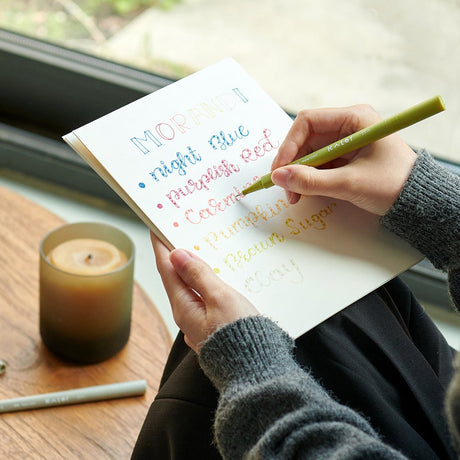 MORANDI
• Night Blue
• Purplish Red
• Carmine
• Pumpkin
• Brown Sugar
• Clay
KACO
KACO